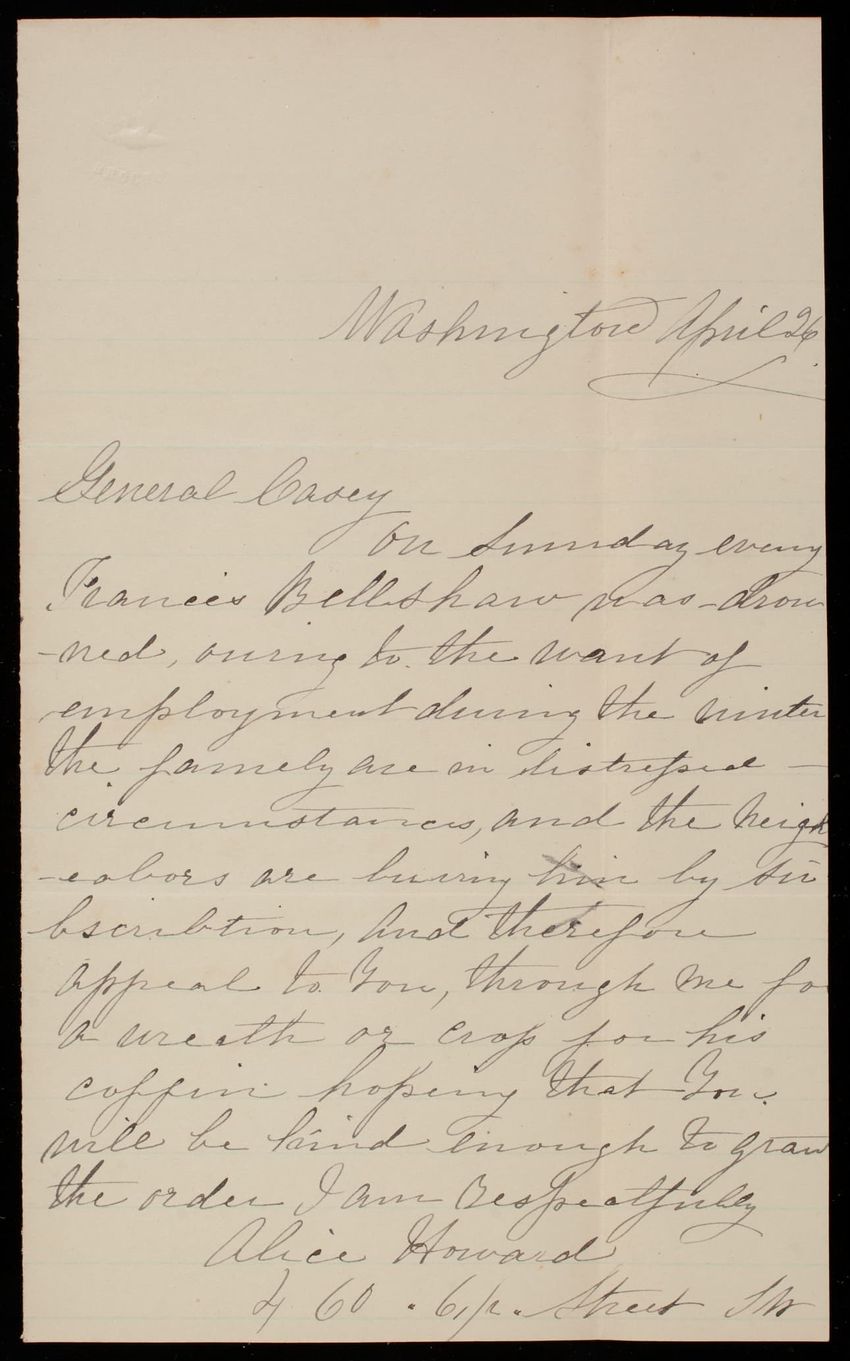 Washington April 26
General Casey
On Sunnday eveng
Francis Bellshaw was drow
-ned, owing to the want of
employment during the winter
the famely are in distressed
circumnstances, and the neigh
-eobors are buring him by su
bscribtion, and therefore
appeal to You, through me fo
a wreath or cross for his
coffin hopeing that You
will be kind enough to gran
the order I am Respectfully
Alice Howard
460 . 6 1/2 . Street SW